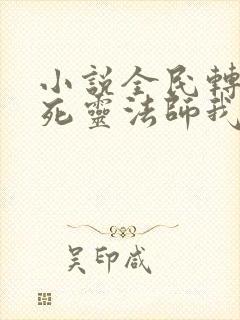 小說全民轉
死靈法師我
吳印咸